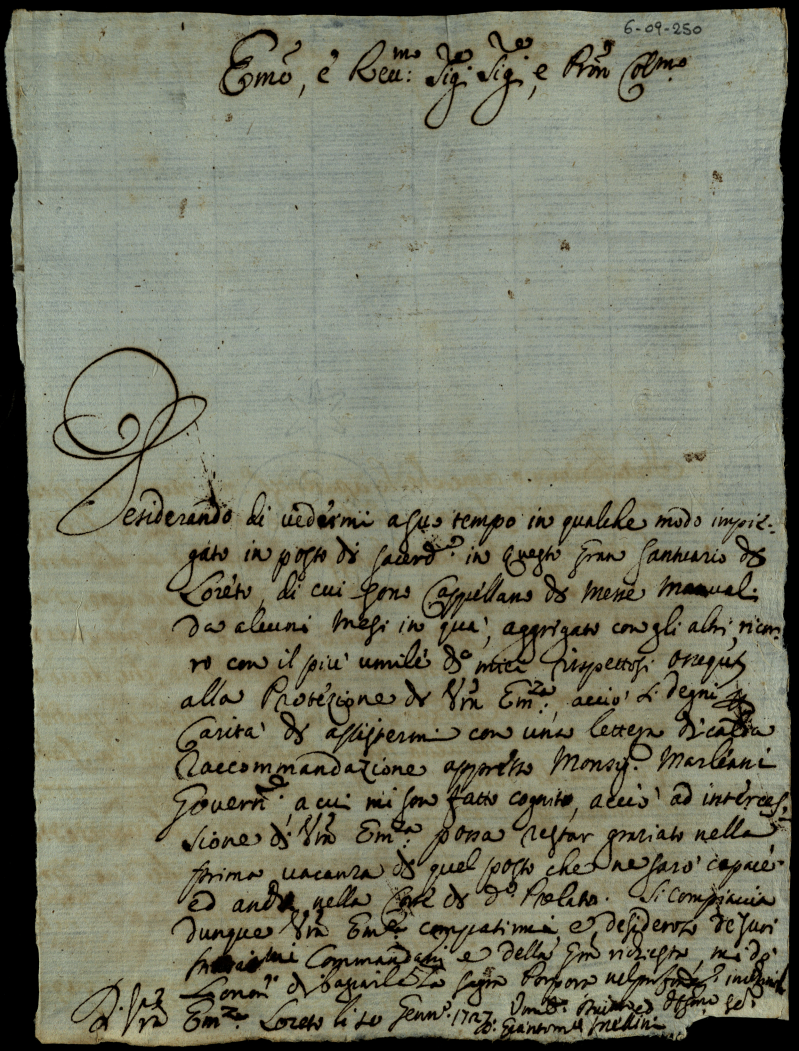 6-09-250
Emo, e Reu:mo Sigre Sigre, e Pron Colmo
Desiderando di vedermi a suo tempo in qualche modo impie-
gato in posto di sacerde in questo gran Santuario di
Loreto, di cui sono Cappellano di Messe Manuali
da alcuni mesi in qua, aggregato con gli altri, ricor-
ro con il più umile de miei rispettosi ossequi
alla Protezione di Vra Emza, acciò si degni
Carità di assistermi con una lettera di calda
Raccommandazione appresso Monsigr. Marliani
Governre, a cui mi son fatto cognito, acciò ad interces-
sione di Vra Emza possa restar graziato nella
prima vacanza di quel posto che ne sarò capace
ed anche nella Corte di do Prelato. Si compiaccia
dunque Vra Emza compatirmi e desideroso de suoi
Commandi e della gra richiesta, mi do
l'onore di bagiarle la sagra Porpora nel
Di Vra Emza Loreto li 10 Gennro 1727